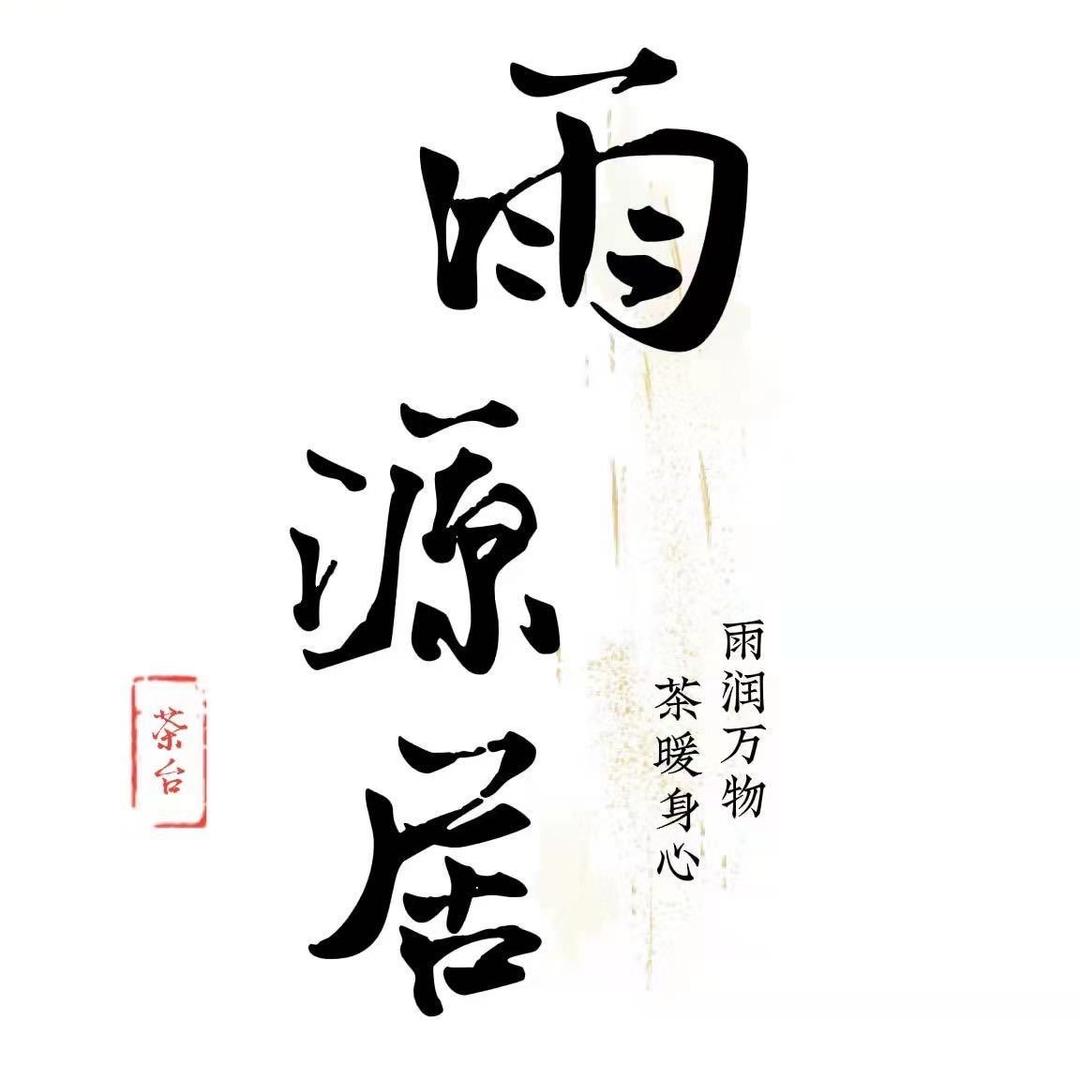 雨源居
雨润万物
茶暖身心
茶台